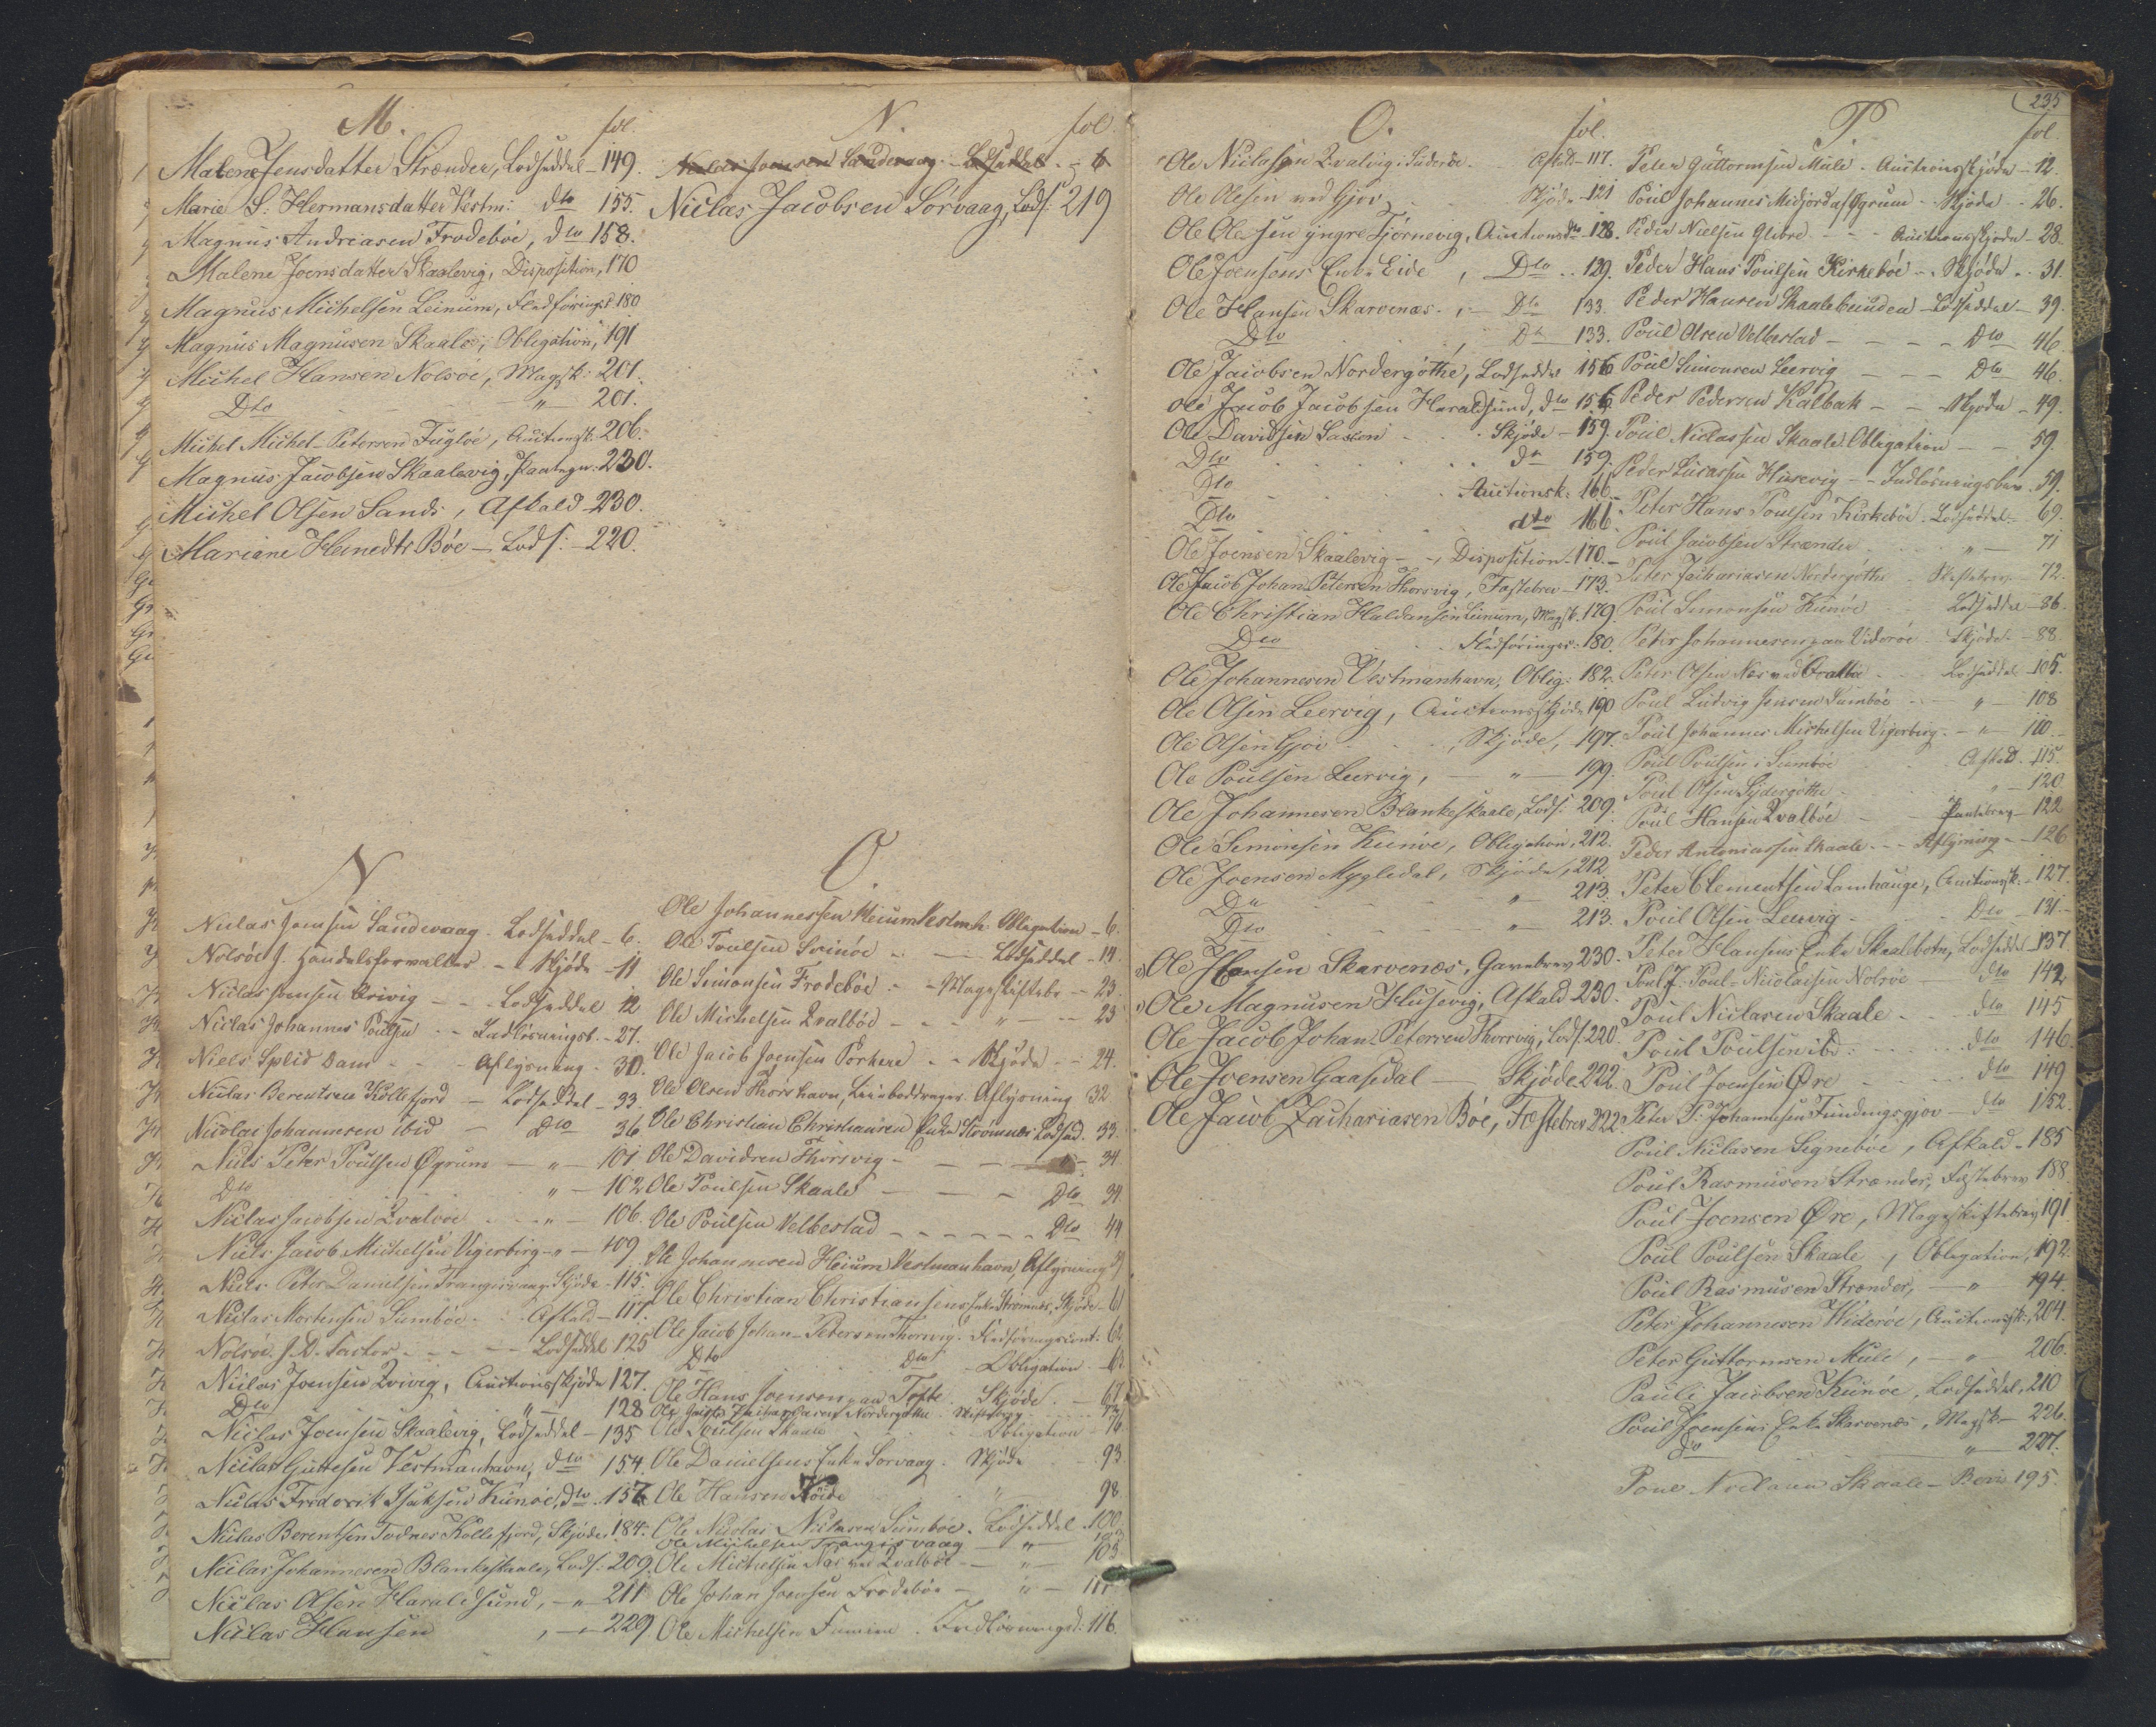 M.
fol.
Malene Jensdatter Strænder, Lodseddel - 149.
Marie S. Hermansdatter Vestm: dto 155.
Magnus Andreasen Frodebøe, dto 158.
Malene Joensdatter Skaalevig, Disposition, 170
Magnus Michelsen Leinum, Fledførings: 180
Magnus Magnusen Skaale, Obligation, 191
Michel Hansen Nolsøe, Magsk: 201.
Dto " 201.
Michel Michel Petersen Fugløe, Auctionsk: 206.
Magnus Jacobsen Skaalevig, Pantegn. 230.
Michel Olsen Sand, Afkald 230.
Mariane Heinedtr Bøe - Lods: - 220.
N.
fol.
Niclas Joensen Sandevaag Lodseddel - 6
Niclas Jacobsen Sørvaag, Lods: 219
N
Niclas Joensen Sandevaag. Lodseddel - 6.
Nolsøe J. Handelsforvalter - Skjøde - 11
Niclas Joensen Qvivig - - Lodseddel 12
Niclas Johannes Poulsen - - Indløsningsb. - 27.
Niels Splid Dam - - - Aflysning - 30.
Niclas Berentsen Kollefjord - Lodseddel - 33.
Nicolai Johannesen ibid - Dto 36
Niels Peter Poulsen Øgrum - " - 101
Dto " - 102
Niclas Jacobsen Qvalvøe - " - 106.
Niels Jacob Michelsen Vigerberg - " - 109
Niels Peter Danielsen Trangisvaag Skjøde - 115.
Niclas Mortensen Sumbøe. Afkald - 117.
Nolsøe J. A. Factor - - - Lodseddel 125
Niclas Joensen Qvivig, Auctionsskjøde 127.
Dto " 128
Niclas Joensen Skaalevig, Lodseddel - 135
Niclas Guttesen Vestmanhavn, dto 154.
Niclas Frederik Isaksen Kunøe, dto 157
Niclas Berentsen Todnes Kollefjord, Skjøde, 184.
Niclas Johannesen Blankeskaale, Lods: 209.
Niclas Olsen Haraldsund, - " - 211
Niclas Hansen , - " - 229.
O
Ole Johannessen Heium Vestmh. Obligation - 6.
Ole Poulsen Svinøe - - Lodseddel - 14.
Ole Simonsen Frodebøe - - Mageskiftebr - 23
Ole Michelsen Qvalbøe - - " - - 23
Ole Jacob Joensen Porkere - - Skjøde - 24.
Ole Olsen Thorshavn, Aflysning 32
Ole Christian Christiansen Enke Strømnæs Lodsed. 33.
Ole Davidsen Thorsvig - - - 34
Ole Poulsen Skaale - - - Dto 39.
Ole Poulsen Velbestad - - - - - Dto 44
Ole Johannesen Heium Vestmanhavn, Aflysning
Ole Christian Christiansens Enke Strømnæs, Skjøde - 61
Ole Jacob Johan Petersen Thorsvig. Fledføringscont: 62
Dto Dto Obligation - 63
Ole Hans Joensen paa Tofte. Skjøde. - 67.
Ole Jacob Zachariasen Nordergøthe
Ole Poulsen Skaale Obligation 76
Ole Danielsens Enke Sørvaag. Skjøde - 93.
Ole Hansen " 98.
Ole Nicolai Niclasen Sumbøe. Lodseddel 100.
Ole Michelsen Trangisvaag - " -
Ole Michelsen Næs ved Qvalbøe - " - 105
Ole Johan Joensen Frodebøe - " - 111
Ole Michelsen Famien. Indløsningsd: 116.
235
O.
fol.
Ole Niclasen Qvalvig i Suderøe. Afkald - 117.
Ole Olesen ved Gjov, Skjøde 121
Ole Olesen yngre Tjørnevig, Auctions dto - 128.
Ole Joensens Enke Eide, Dto - - 129.
Ole Hansen Skarvenæs. , - Dto 133.
Dto , Dto 133.
Ole Jacobsen Nordergøthe, Lodseddel 156
Ole Jacob Jacobsen Haraldsund, dto 156
Ole Davidsen Saxen - - Skjøde - 159.
Dto dto 159.
Dto Auctionsk: 166.
Dto dto 166.
Ole Joensen Skaalevig - - , Disposition - 170. -
Ole Jacob Johan Petersen Thorsvig, Fæstebrev - 173.
Ole Christian Haldansen Leinum, Magsk. 179.
Dto Fledførings: 180.
Ole Johannesen Vestmanhavn, Oblig: 182.
Ole Olsen Leervig, Auctionsskjøde 190
Ole Olsen Gjov , Skjøde, 197.
Ole Poulsen Leervig, - " - 199.
Ole Johannesen Blankeskaale, Lods: 209.
Ole Simonsen Kunøe, Obligation, 212.
Ole Joensen Mygledal, Skjøde, 212.
Dto " 213.
Dto " 213.
Ole Hansen Skarvenæs, Gavebrev 230.
Ole Magnusen Husevig, Afkald 230.
Ole Jacob Johan Petersen Thorsvig, Lods. 220.
Ole Joensen Gaasedal - Skjøde 222.
Ole Jacob Zachariasen Bøe, Fæstebrev 222.
P.
fol.
Peter Guttormsen Mule. Auctionsskjøde - 12.
Poul Johannes Midjord af Øgrum - Skjøde - 26.
Peder Nielsen Glibre - - - Auctionsskjøde - 28
Peder Hans Poulsen Kirkebøe - - Skjøde - - 31.
Peder Hansen Skaalebunden - Lodseddel - 39.
Poul Olsen Velbestad - - - - Dto 46.
Poul Simonsen Leervig - - - Dto 46.
Peder Pedersen Kalbak - - Skjøde - 49.
Poul Niclassen Skaale. Obligation - - 59.
Peder Lucassen Husevig - - Indløsningsbrev. 59.
Peter Hans Poulsen Kirkebøe. Lodseddel - 69.
Poul Jacobsen Strænder " - 71
Peter Zachariasen Nordergøthe 72.
Poul Simonsen Kunøe Lodseddel - 86.
Peter Johannesen paa Viderøe Skjøde - - 88.
Peter Olsen Næs ved Qvalbøe - - Lodseddel - 105.
Poul Ludvig Jensen Sumbøe - - " - 108
Poul Johannes Michelsen Vigerberg - - " - 110
Poul Poulsen i Sumbøe Afkald. 115.
Poul Olsen Sydergøthe " - 120
Poul Hansen Qvalbøe - Pantebrev - 122
Peder Antoniassen Skaale - - Aflysning - - 126
Peter Clementsen Lamhauge, Auctionssk: - 127.
Poul Olsen Leervig - - Dto - 131 -
Peter Hansens Enke Skaalebotn, Lodseddel - 137.
Poul J. Poul-Nicolaisen Nolsøe - dto 142
Poul Niclasen Skaale - dto 145
Poul Poulsen ibd: - dto 146.
Poul Joensen Øre - - dto 149
Peter P. Johannesen Fundingsgjov - dto 152.
Poul Niclasen Signebøe, Afkald - 185
Poul Rasmusen Strænder, Fæstebrev 188
Poul Joensen Øre, Mageskiftebrev, 191
Poul Poulsen Skaale , Obligation, 192.
Poul Rasmusen Strænder, - " 194.
Peter Johannesen Widerøe, Auctionssk:, 204.
Peter Guttormsen Mule, - " 206.
Pauli Jacobsen Kunøe, Lodseddel, 210
Poul Joensens Enke Skarvenæs, Magsk - 226.
do " 227.
Poul Niclasen Skaale - Bevis 195.